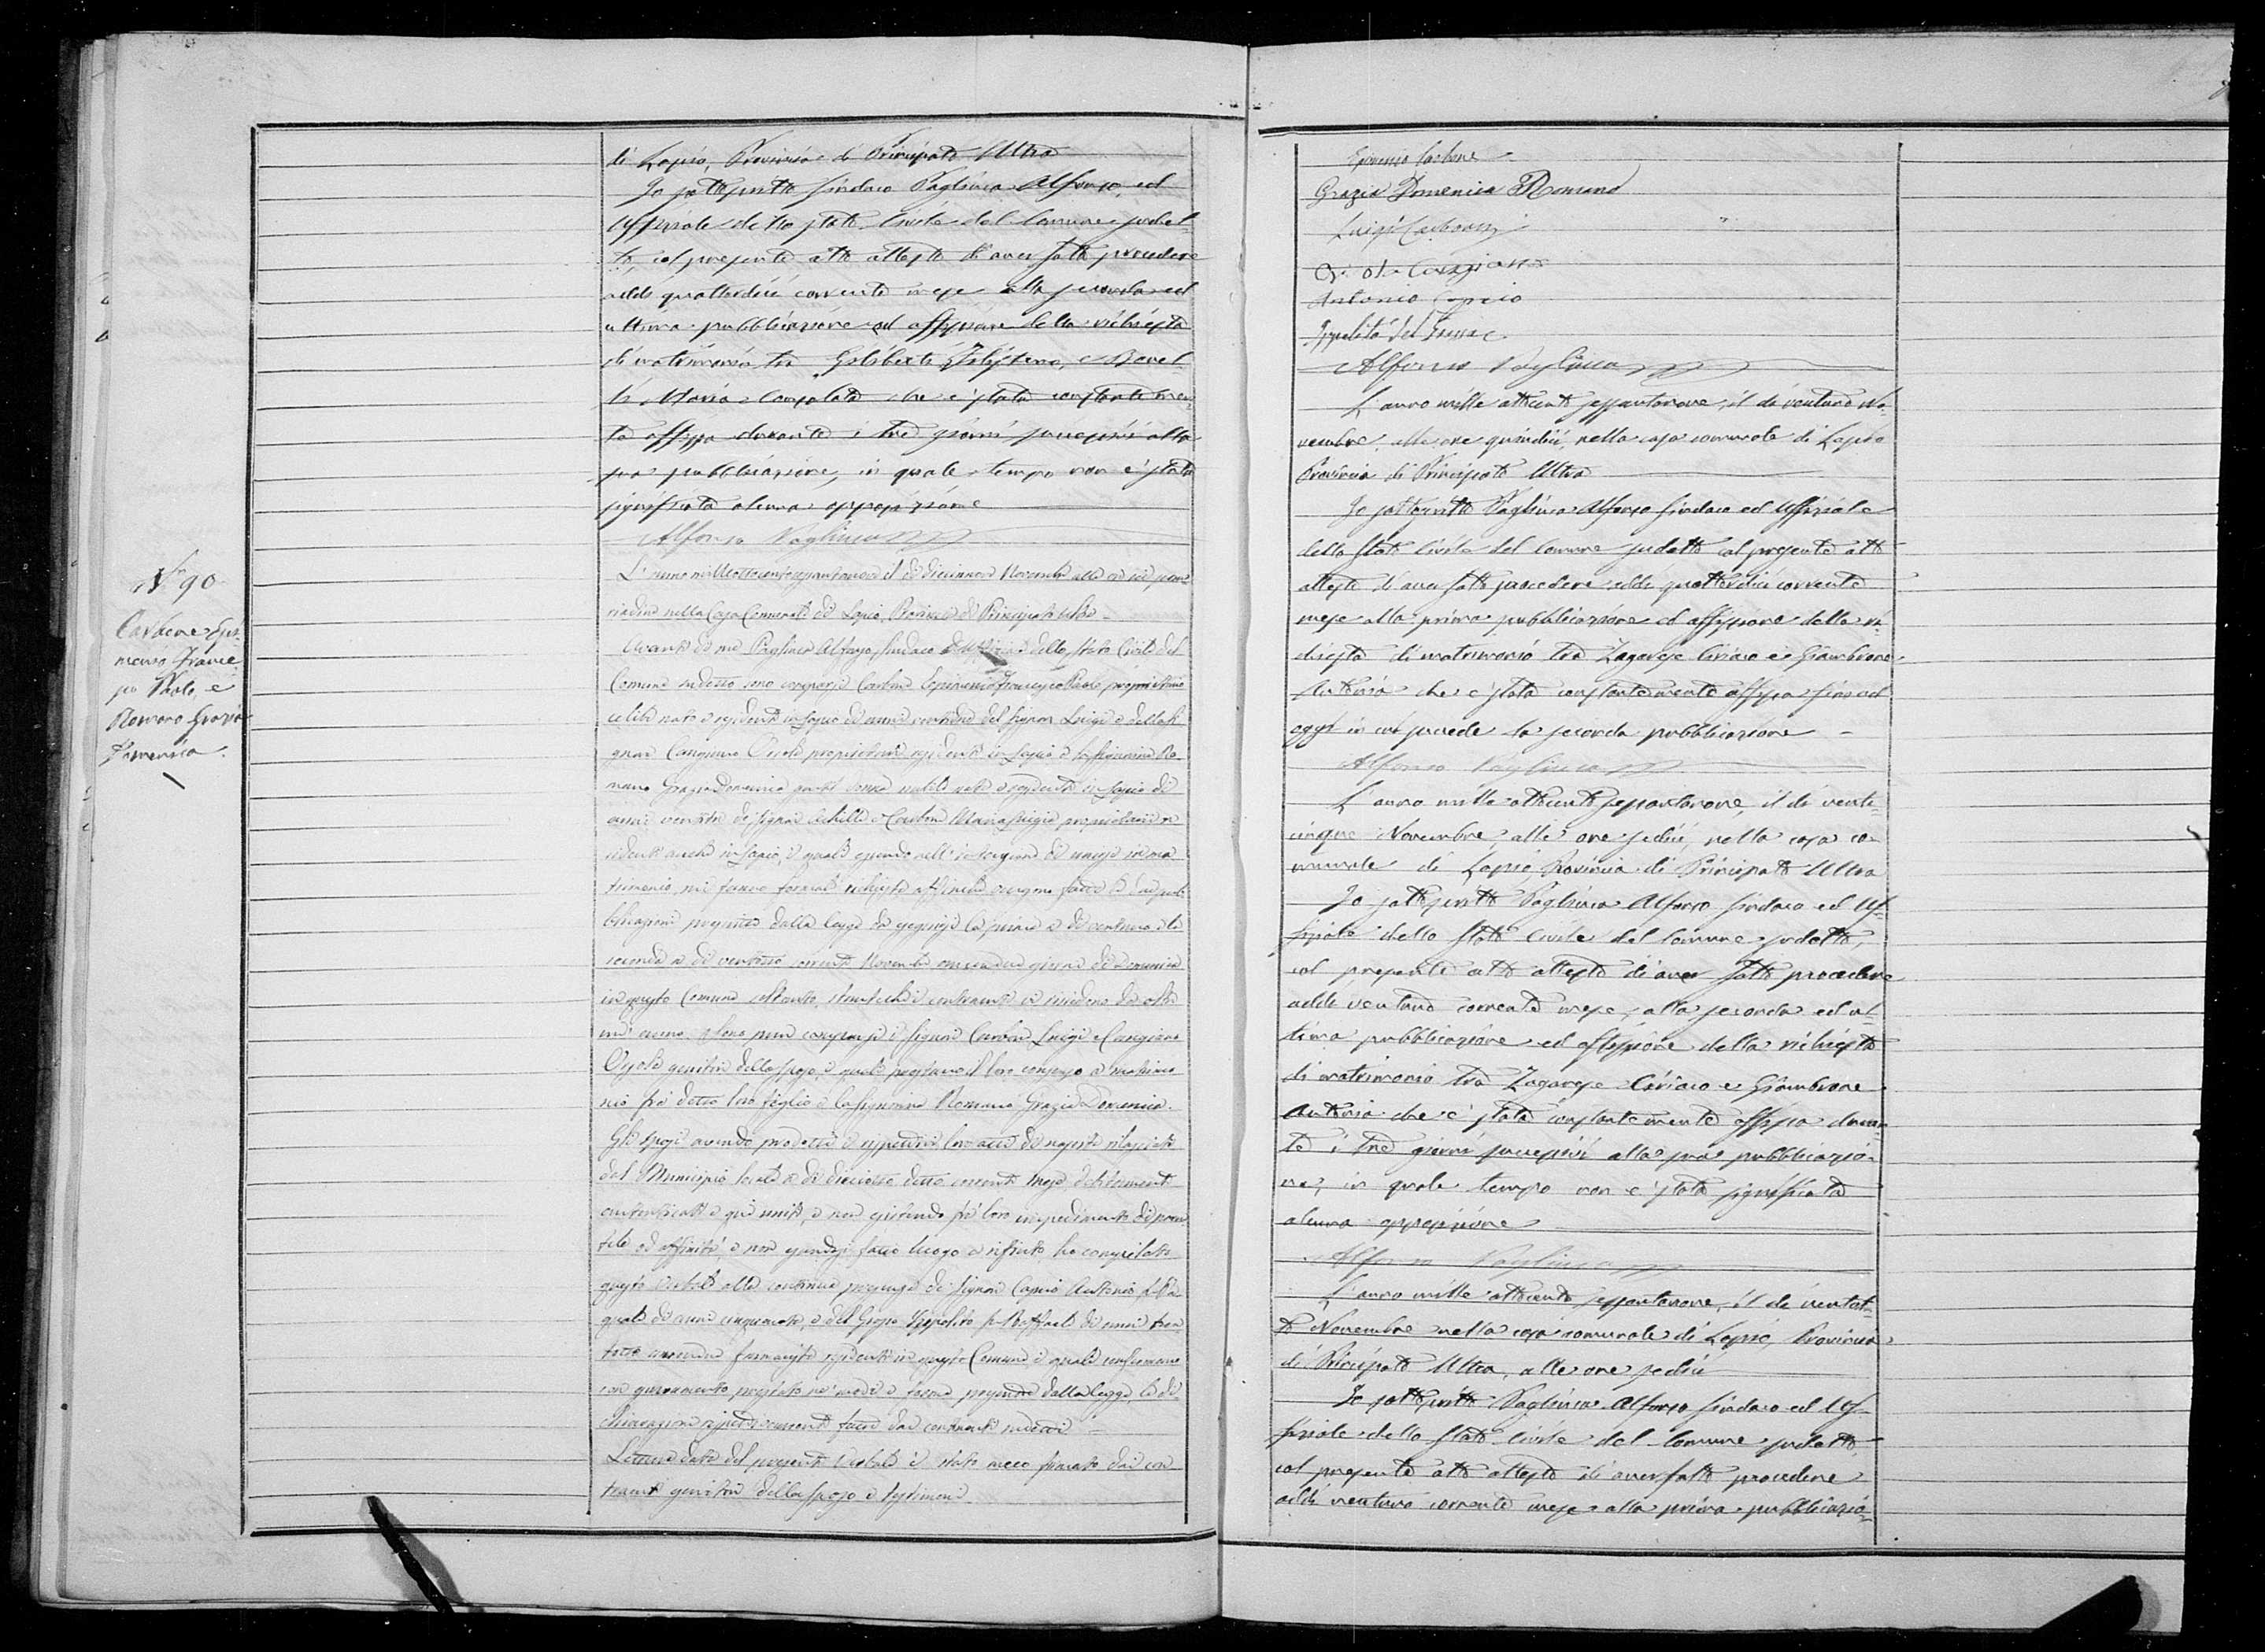 di Lapio, Provincia di Principato Ultra
Io sottoscritto Sindaco Pagliuca Alfonso, ed
Uffiziale dello Stato Civile del Comune sudet-
to, col presente atto attesto di aver fatto procedere
addì quattordici corrente mese alla seconda ed
ultima pubblicazione ed affissione della richiesta
di matrimonio tra Filisteno, e
Maria Consolata che è stata constantemen-
te affissa durante i tre giorni successivi alla
sua pubblicazione, in quale tempo non è stata
significata alcuna opposizione
Alfonso Pagliuca
N.º 90
Carbone Epi-
menio France
sco Paolo, e
Romano Grazia
Domenica.
L'anno milleottocentosettantanove il dì diciannove Novembre alle ore
nella Casa Comunale di Lapio, Provincia di Principato Ultra
Avanti di me Pagliuca Alfonso Sindaco ed Uffiziale dello Stato Civile del
Comune sudetto sono comparsi Carbone Epimenio Francesco Paolo proprietario
celibe nato e residente in Lapio di anni del Signor Luigi e della Si
gnora Cangiano proprietarii residenti in Lapio e la Signorina Ro-
mano Grazia Domenica nubile nata e residente in Lapio di
anni ventitre di Signor Achille e Carbone Maria Luigia proprietarii re
sidenti anche in Lapio, i quali essendo nell'intenzione di unirsi in ma
trimonio, mi fanno formale richiesta affinchè vengano fatte le due pub
blicazioni prescritte dalla legge da eseguirsi la prima a dì ventuno e la
seconda a dì ventotto corrente Novembre giorni di Domenica
in questo Comune soltanto, i contraenti vi risiedono da oltre
un anno. Sono pure comparsi i Signori Carbone Luigi e Cangiano
genitori dello sposo, i quali prestano il loro consenso al matrimo
nio fra detto loro figlio e la Signorina Romano Grazia Domenica.
Gli sposi avendo prodotto i rispettivi loro atti di nascita rilasciati
dal Municipio locale a dì diciotto detto corrente mese, debitamente
autenticati e qui uniti, e non esistendo fra loro impedimento di paren
tela od affinità, e non essendosi fatto luogo a rifiuto, ho compilato
questo verbale alla continua presenza di Signori Capiio Antonio fu Pa
squale di anni cinquanta, e Del Grosso Ippolito fu Raffaele di anni tren
totto farmacista residenti in questo Comune i quali confermano
con giuramento prestato ne' modi e forma prescritti dalla legge, le di
chiarazioni rispettivamente fatte dai contraenti medesimi
Lettura data del presente verbale è stato meco firmato dai con
traenti genitori dello sposo e testimoni
Epimenio Carbone
Grazia Domenica Romano
Luigi Carbone
Cangiano
Antonio Capiio
Ippolito del Grosso
Alfonso Pagliuca
L'anno mille ottocento settantanove, il dì ventuno No-
vembre, alle ore quindici, nella casa comunale di Lapio
Provincia di Principato Ultra
Io sottoscritto Pagliuca Alfonso Sindaco ed Uffiziale
dello Stato Civile del Comune sudetto col presente atto
attesto di aver fatto procedere addì quattordici corrente
mese alla prima pubblicazione ed affissione della ri-
chiesta di matrimonio tra Zagarese Ciriaco e Giambrone
Antonia che è stata constantemente affissa fino ad
oggi in cui succede la seconda pubblicazione
Alfonso Pagliuca
L'anno mille ottocento settantanove, il dì venti-
cinque Novembre, alle ore sedici, nella casa co-
munale di Lapio, Provincia di Principato Ultra
Io sottoscritto Pagliuca Alfonso Sindaco ed Uf-
fiziale dello Stato Civile del Comune sudetto,
col presente atto attesto di aver fatto procedere
addì ventuno corrente mese, alla seconda ed ul-
tima pubblicazione ed affissione della richiesta
di matrimonio tra Zagarese Ciriaco e Giambrone
Antonia che è stata constantemente affissa duran-
te i tre giorni successivi alla sua pubblicazio-
ne, in quale tempo non è stata significata
alcuna opposizione
Alfonso Pagliuca
L'anno mille ottocento settantanove, il dì ventot-
to Novembre nella casa comunale di Lapio, Provincia
di Principato Ultra, alle ore sedici
Io sottoscritto Pagliuca Alfonso Sindaco ed Uf-
fiziale dello Stato Civile del Comune sudetto,
col presente atto attesto di aver fatto procedere
addì ventuno corrente mese alla prima pubblicazio-